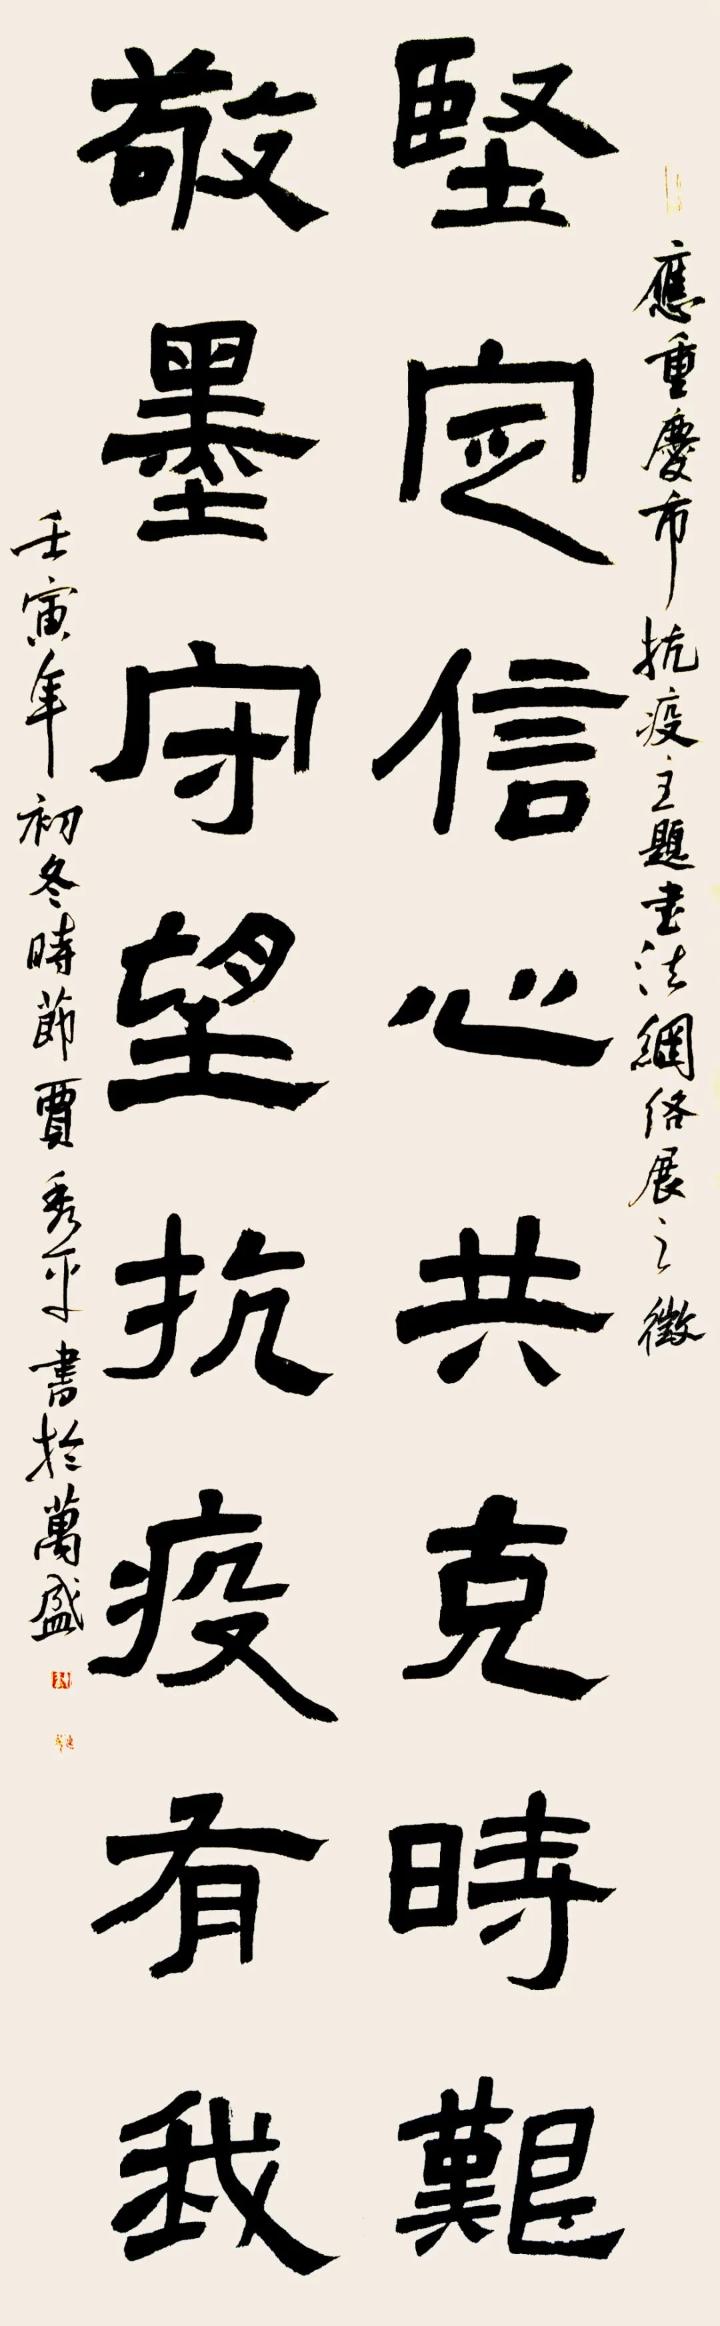 應重慶市抗疫主題书法網络展之徵
堅定信心共克時艱
敬墨守望抗疫有我
壬寅年初冬時節賈秀平書於萬盛